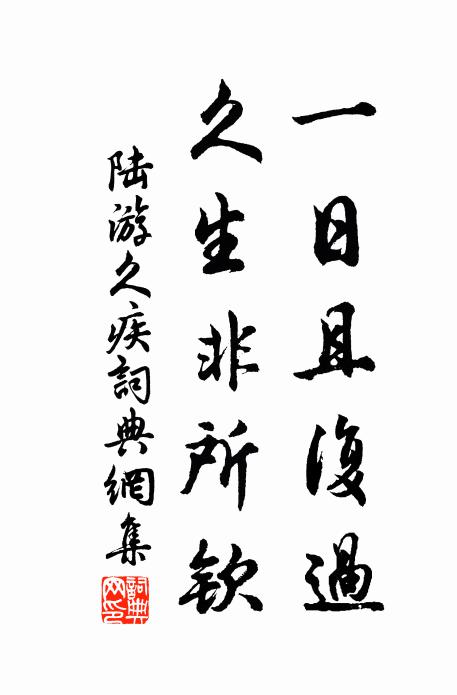 一日且復過
久生非所欽
陆游久疾詞典網集
詞典网印